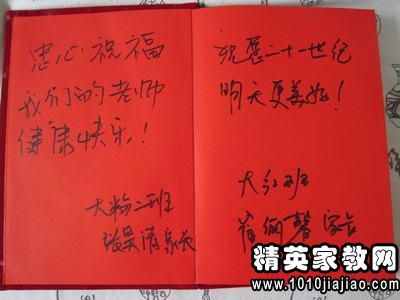 忠心祝福
我们的老师
健康快乐!
大粉二班
张昊清家长
祝愿二十一世纪
明天更美好!
大红班
家长
精英家教网
www.1010jiajiao.com